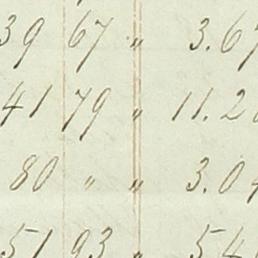 39 67 " 3.67
41 79 " 11.2
80 " " 3.0
51 93 " 5